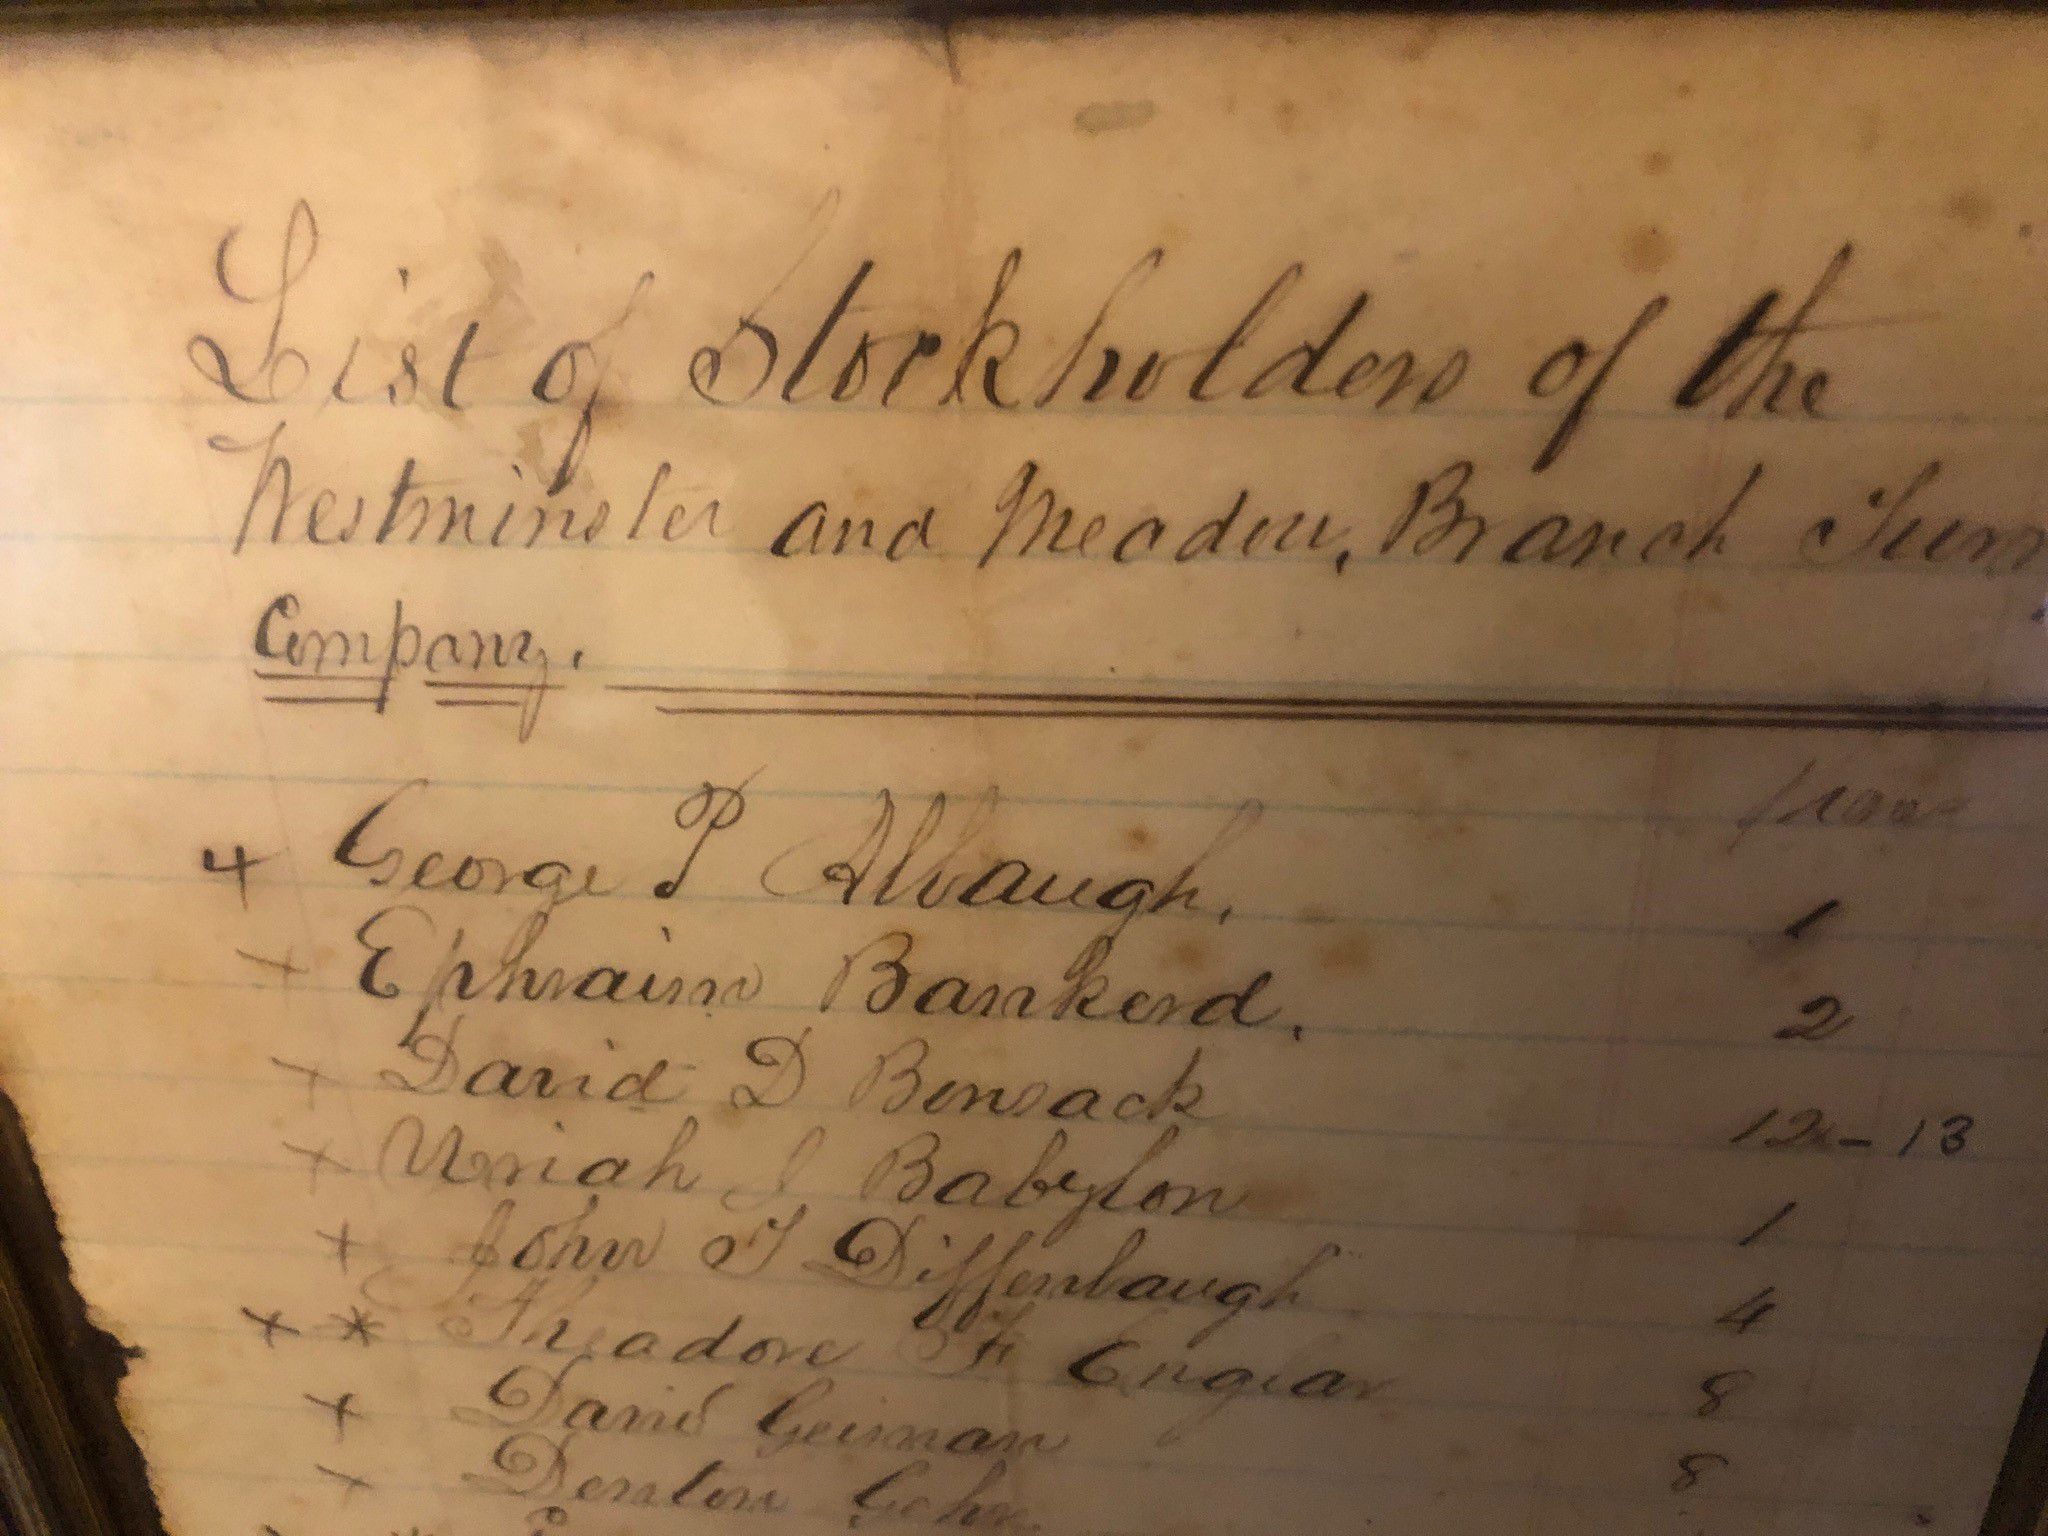 List of Stockholders of the
Westminster and Meadow, Branch Turn
Company.
+ George P Albaugh, 1
+ Ephraim Bankerd. 2
+ David D Bonsack 12-13
+ Uriah J Babylon 1
+ John T Diffenbaugh 4
+ * Theadore F Englar 8
+ David Geiman 8
+ Denton Gehr